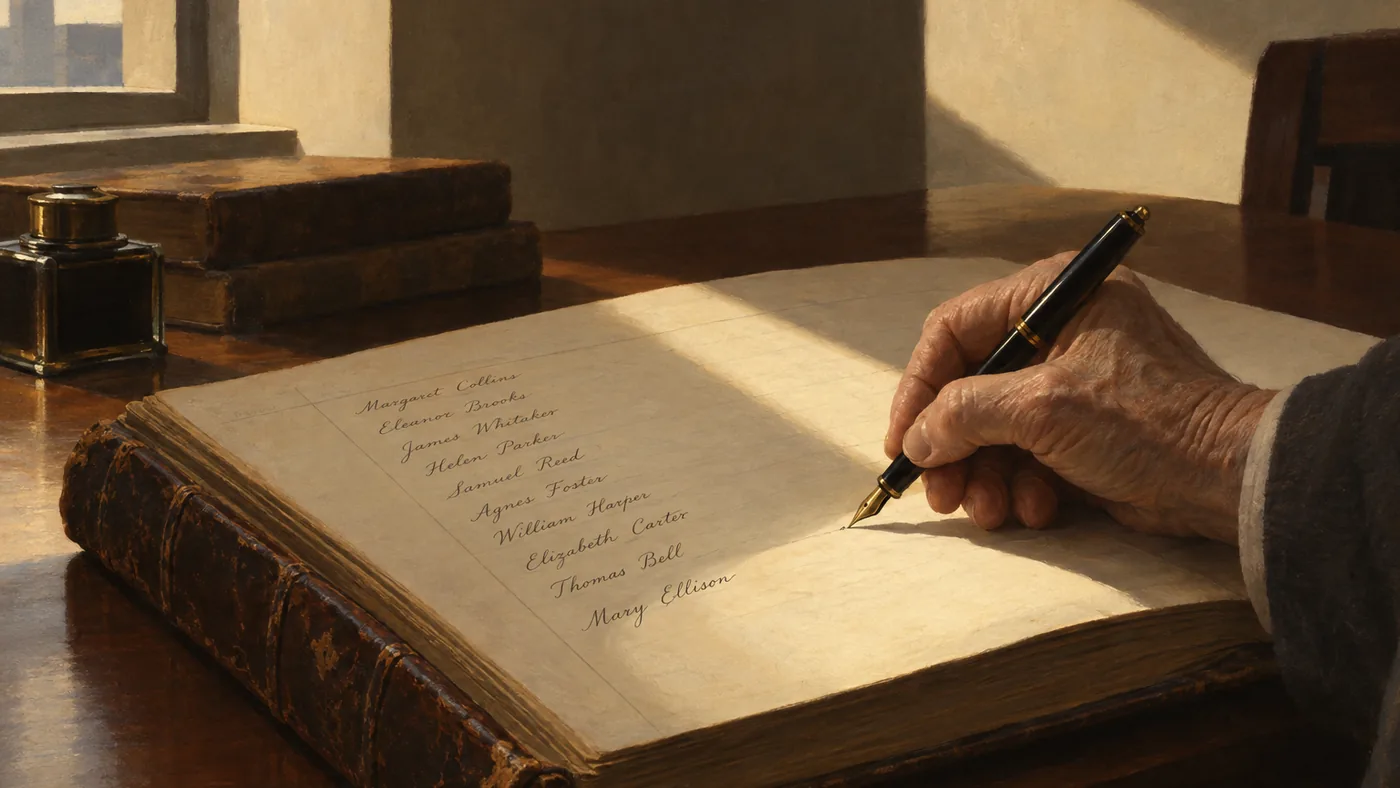 Margaret Collins
Eleanor Brooks
James Whitaker
Helen Parker
Samuel Reed
Agnes Foster
William Harper
Elizabeth Carter
Thomas Bell
Mary Ellison